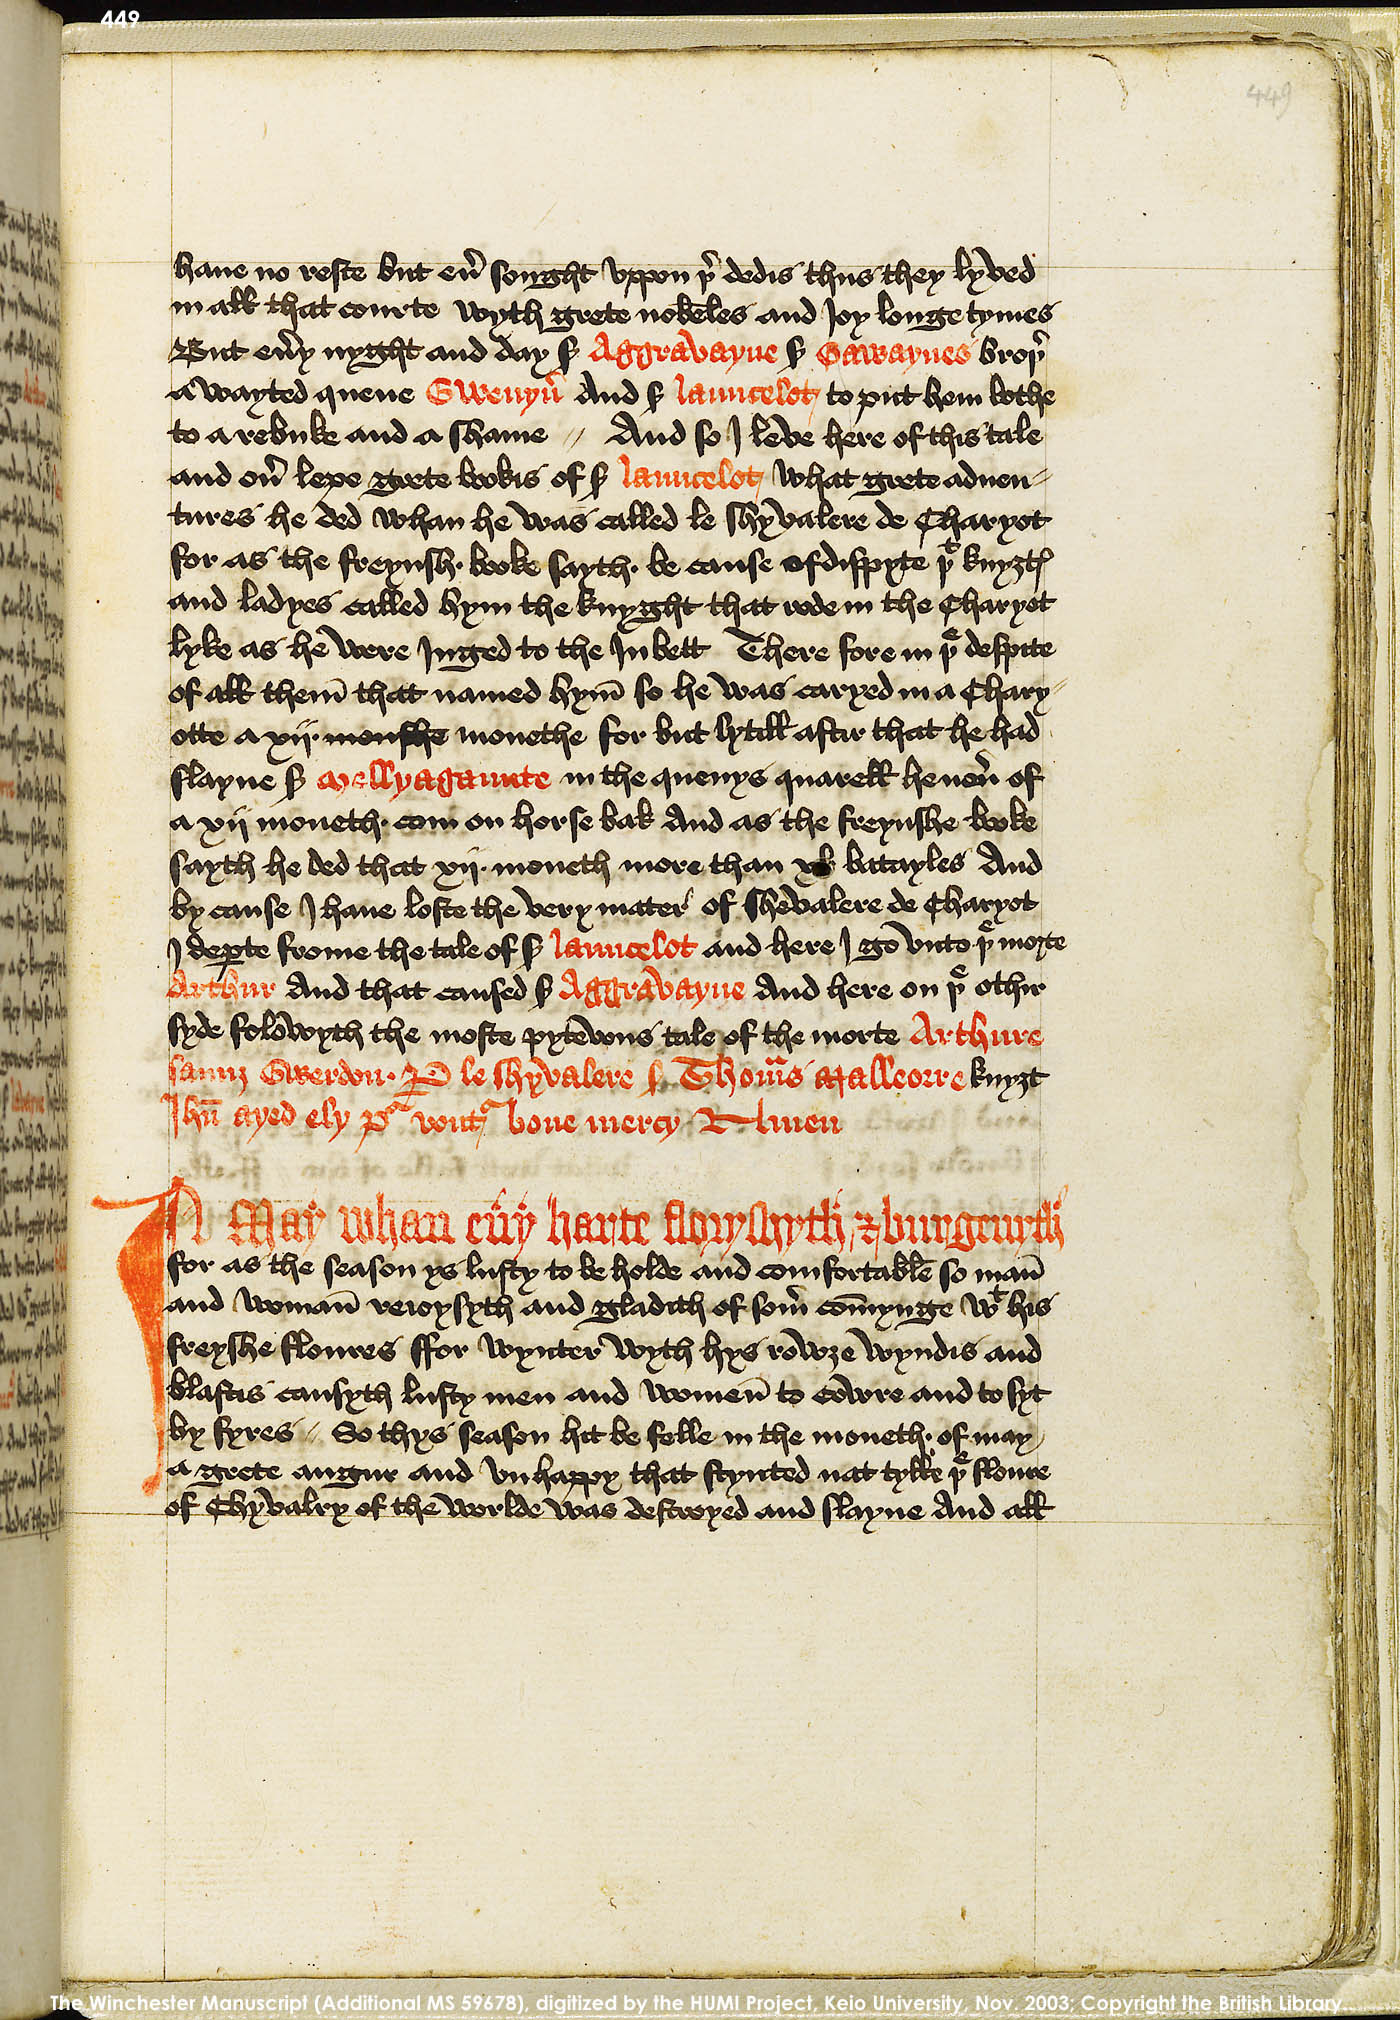 449
449
haue no reste but eu͛ souȝght vppon þ͛ dedis thus they lyved
in all that courte wyth grete nobeles and Joy longe tymes
But eu͛y nyght and day s͛ Aggravayne s͛ Gawaynes broþ͛
a wayted quene Gwenyu͛ And s͛ launcelot to put hem bothe
to a rebuke and a shame // And so I leve here of this tale
and ou͛ lepe grete bookis of s͛ launcelot what grete aduen⸗
tures he ded whan he was called le shyvalere de Charyot
for as the freynsh· booke sayth· be cause of dispyte þᵗ knyȝtꝭ
and ladyes called hym the knyght that rode in the Charyot
lyke as he were Juged to the Jubett There fore in þᵉ despite
of all them̄ that named hym̄ so he was caryed in a Chary⸗
otte a xij· monethe for but lytill aftir that he had
slayne s͛ Mellyagaunte in the quenys quarell he neu͛ of
a xij moneth· com on horse bak And as the freynshe booke
sayth he ded that xij· moneth more than xl batayles And
by cause I haue loste the very mater of shevalere de Charyot
I deꝑte frome the tale of s͛ launcelot and here I go vnto þᵉ morte
Arthur And that caused s͛ Aggravayne And here on þᵉ othir
syde folowyth the moste pytevous tale of the morte Arthure
saunz Gwerdon· P le shyvalere s͛ Thomᵃs Malleorre knyȝt
Jhū ayed ely pᵃ voutᵃ bone mercy Amen
IN May whan eu͛y harte floryshyth & burgeuyth
for as the season ys lusty to be holde and comfortable so man̄
and woman̄ reioysyth and gladith of som͛ com̄ynge wᵗ his
freyshe floures ffor wynter wyth hys rowȝe wyndis and
blastis causyth lusty men and women̄ to cowre and to syt
by fyres // So thys season hit be felle in the moneth· of may
a grete angur and vnhappy that stynted nat tylle þᵉ floure
of Chyvalry of the worlde was destroyed and slayne And all
The Winchester Manuscript (Additional MS 59678), digitized by the HUMI Project, Keio University, Nov. 2003; Copyright the British Library.